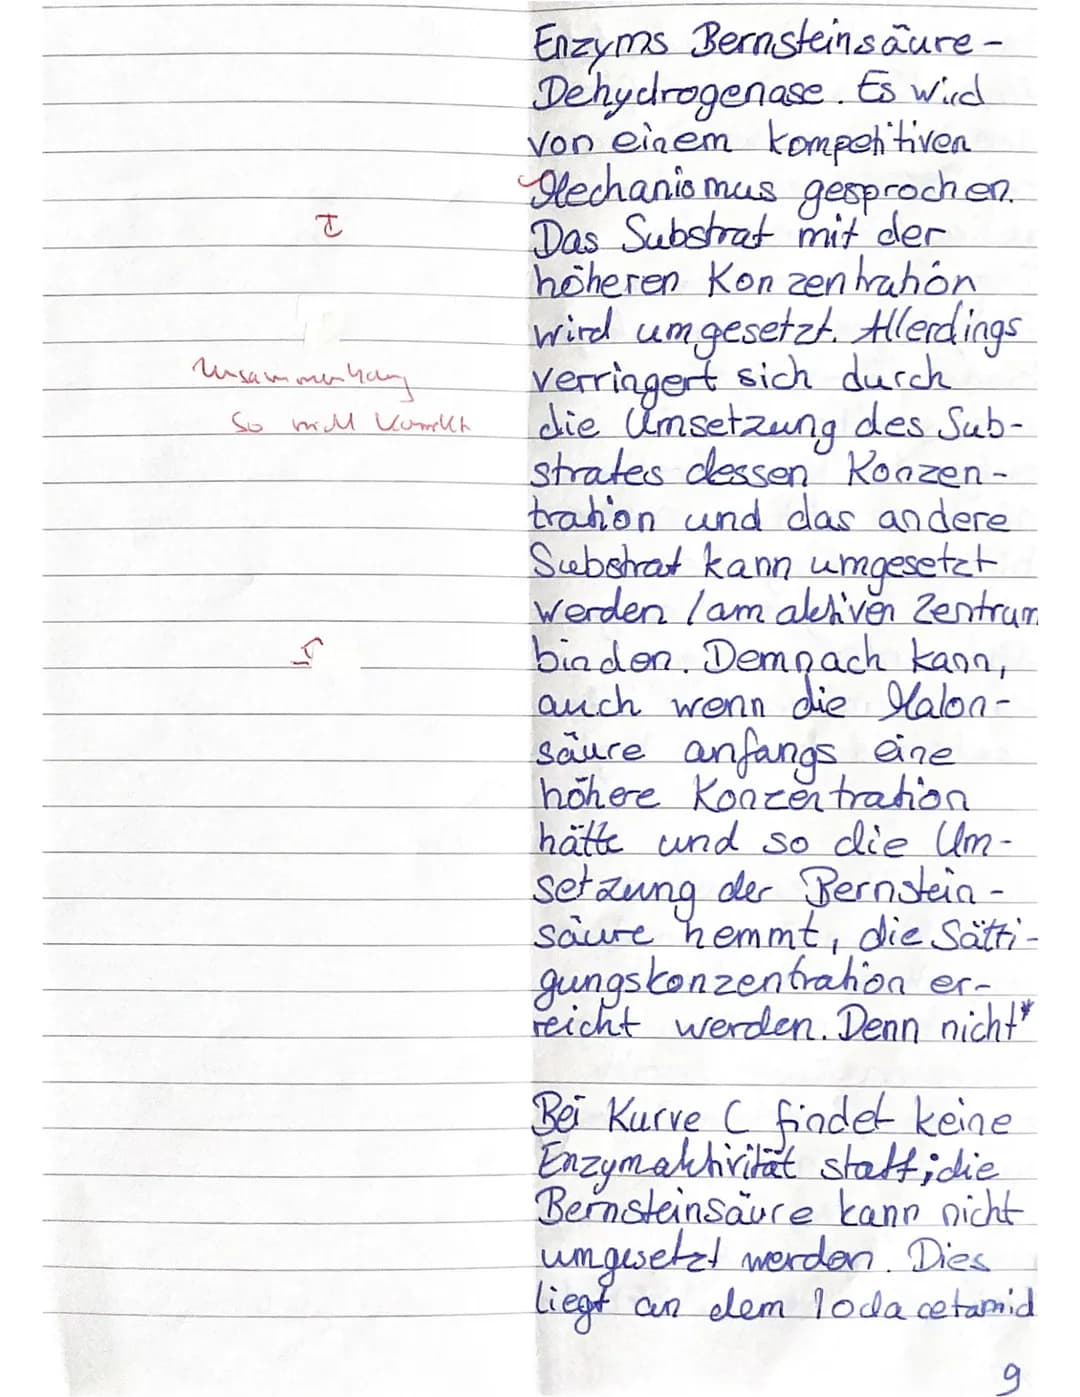 Enzyms Bernsteinsäure-
Dehydrogenase. Es wird
von einem kompetitiven
Mechanismus gesprochen.
Das Substrat mit der
höheren Konzentration
wird umgesetzt. Allerdings
Zusammenhang
verringert sich durch
so nicht korrekt
die Umsetzung des Sub-
strates dessen Konzen-
tration und das andere
Substrat kann umgesetzt
werden / am aktiven Zentrum
binden. Demnach kann,
auch wenn die Malon-
säure anfangs eine
höhere Konzentration
hätte und so die Um-
setzung der Bernstein-
säure hemmt, die Sätti-
gungskonzentration er-
reicht werden. Denn nicht*
Bei Kurve C findet keine
Enzymaktivität statt; die
Bernsteinsäure kann nicht
umgesetzt werden. Dies
liegt an dem Iodacetamid
9